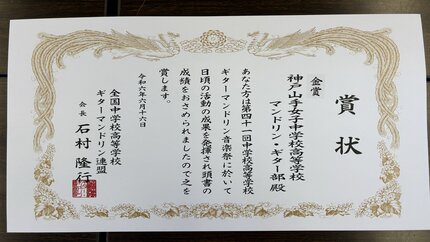 賞状
金賞
神戸山手女子中学校高等学校
マンドリン・ギター部殿
あなた方は第四十一回中学校高等学校
ギターマンドリン音楽祭に於いて
日頃の活動の成果を発揮され頭書の
成績をおさめられましたので之を
賞します。
令和六年六月十六日
全国中学校高等学校
ギターマンドリン連盟
会長 石村隆行